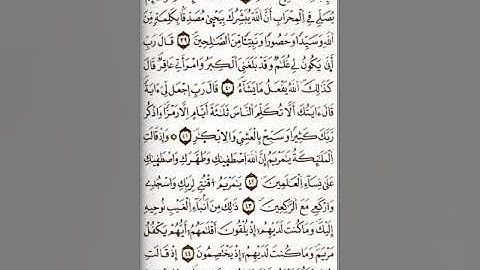 يُصَلِّي فِي الْمِحْرَابِ أَنَّ اللَّهَ يُبَشِّرُكَ بِيَحْيَىٰ مُصَدِّقًا بِكَلِمَةٍ مِّنَ
اللَّهِ وَسَيِّدًا وَحَصُورًا وَنَبِيًّا مِّنَ الصَّالِحِينَ ٣٩ قَالَ رَبِّ
أَنَّىٰ يَكُونُ لِي غُلَامٌ وَقَدْ بَلَغَنِيَ الْكِبَرُ وَامْرَأَتِي عَاقِرٌ قَالَ
كَذَٰلِكَ اللَّهُ يَفْعَلُ مَا يَشَاءُ ٤٠ قَالَ رَبِّ اجْعَل لِّي آيَةً
قَالَ آيَتُكَ أَلَّا تُكَلِّمَ النَّاسَ ثَلَاثَةَ أَيَّامٍ إِلَّا رَمْزًا وَاذْكُر
رَّبَّكَ كَثِيرًا وَسَبِّحْ بِالْعَشِيِّ وَالْإِبْكَارِ ٤١ وَإِذْ قَالَتِ
الْمَلَائِكَةُ يَا مَرْيَمُ إِنَّ اللَّهَ اصْطَفَاكِ وَطَهَّرَكِ وَاصْطَفَاكِ
عَلَىٰ نِسَاءِ الْعَالَمِينَ ٤٢ يَا مَرْيَمُ اقْنُتِي لِرَبِّكِ وَاسْجُدِي
وَارْكَعِي مَعَ الرَّاكِعِينَ ٤٣ ذَٰلِكَ مِنْ أَنبَاءِ الْغَيْبِ نُوحِيهِ
إِلَيْكَ وَمَا كُنتَ لَدَيْهِمْ إِذْ يُلْقُونَ أَقْلَامَهُمْ أَيُّهُمْ يَكْفُلُ
مَرْيَمَ وَمَا كُنتَ لَدَيْهِمْ إِذْ يَخْتَصِمُونَ ٤٤ إِذْ قَالَتِ